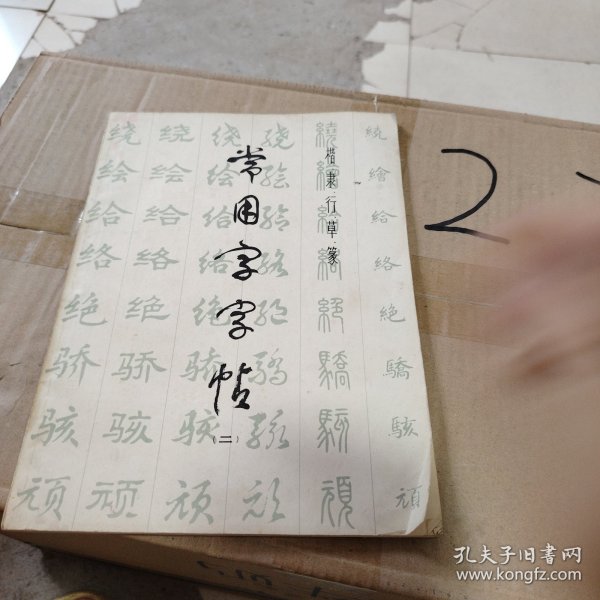 常用字字帖
(二)
楷隶行草篆
绕绕绕绕繞繞
绘绘绘绘繪繪
给给给给給給
络络络络絡絡
绝绝绝绝絕絕
骄骄骄骄驕驕
骇骇骇骇駭駭
顽顽顽顽頑頑
2
孔夫子旧书网
www.kongfz.com